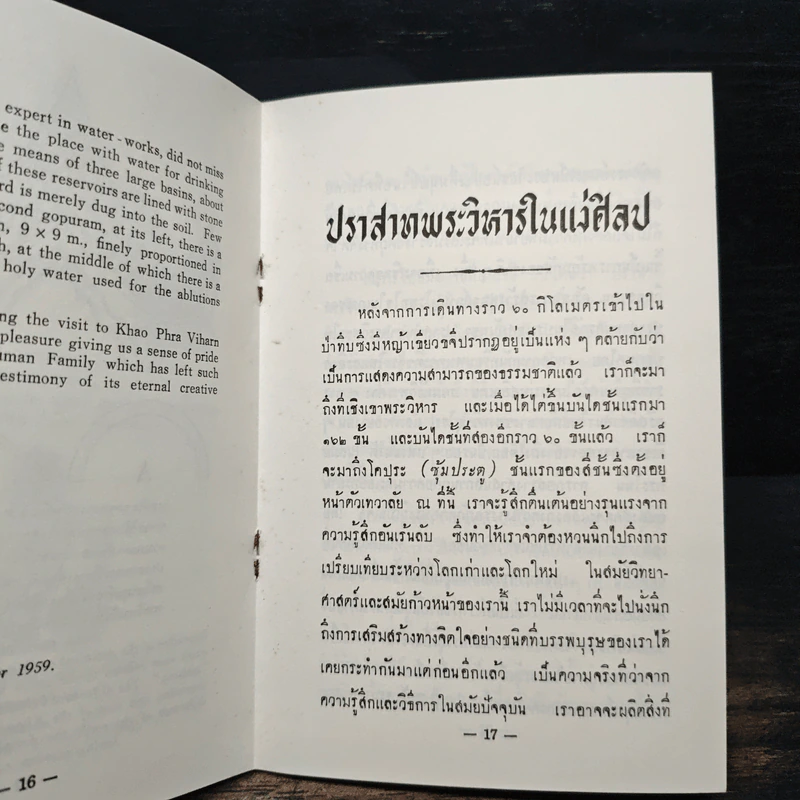 expert in water-works, did not miss
e the place with water for drinking
e means of three large basins, about
f these reservoirs are lined with stone
rd is merely dug into the soil. Few
cond gopuram, at its left, there is a
n, 9 × 9 m., finely proportioned in
h, at the middle of which there is a
holy water used for the ablutions
ng the visit to Khao Phra Viharn
pleasure giving us a sense of pride
uman Family which has left such
estimony of its eternal creative
r 1959.
— 16 —
ปราสาทพระวิหารในแง่ศิลป
หลังจากการเดินทางราว ๖๐ กิโลเมตรเข้าไปใน
ป่าทึบซึ่งมีหญ้าเขียวขจีปรากฏอยู่เป็นแห่ง ๆ คล้ายกับว่า
เป็นการแสดงความสามารถของธรรมชาติแล้ว เราก็จะมา
ถึงที่เชิงเขาพระวิหาร และเมื่อได้ไต่ขึ้นบันไดชั้นแรกมา
๑๖๒ ขั้น และบันไดชั้นที่สองอีกราว ๖๐ ขั้นแล้ว เราก็
จะมาถึงโคปุระ (ซุ้มประตู) ชั้นแรกของสี่ชั้นซึ่งตั้งอยู่
หน้าตัวเทวาลัย ณ ที่นี้ เราจะรู้สึกตื่นเต้นอย่างรุนแรงจาก
ความรู้สึกอันเร้นลับ ซึ่งทำให้เราจำต้องหวนนึกไปถึงการ
เปรียบเทียบระหว่างโลกเก่าและโลกใหม่ ในสมัยวิทยา-
ศาสตร์และสมัยก้าวหน้าของเรานี้ เราไม่มีเวลาที่จะไปนั่งนึก
ถึงการเสริมสร้างทางจิตใจอย่างชนิดที่บรรพบุรุษของเราได้
เคยกระทำกันมาแต่ก่อนอีกแล้ว เป็นความจริงที่ว่าจาก
ความรู้สึกและวิธีการในสมัยปัจจุบัน เราอาจจะผลิตสิ่งที่
— 17 —